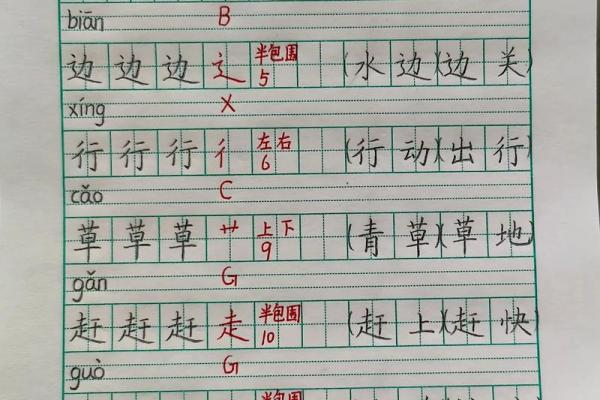 biān B
边 边 边 辶 半包围 5 (水 边)(边 关)
xíng X
行 行 行 彳 左右 6 (行 动)(出 行)
cǎo C
草 草 草 艹 上下 9 (青 草)(草 地)
gǎn G
赶 赶 赶 走 半包围 10 (赶 上)(赶 快)
guò G
半包围